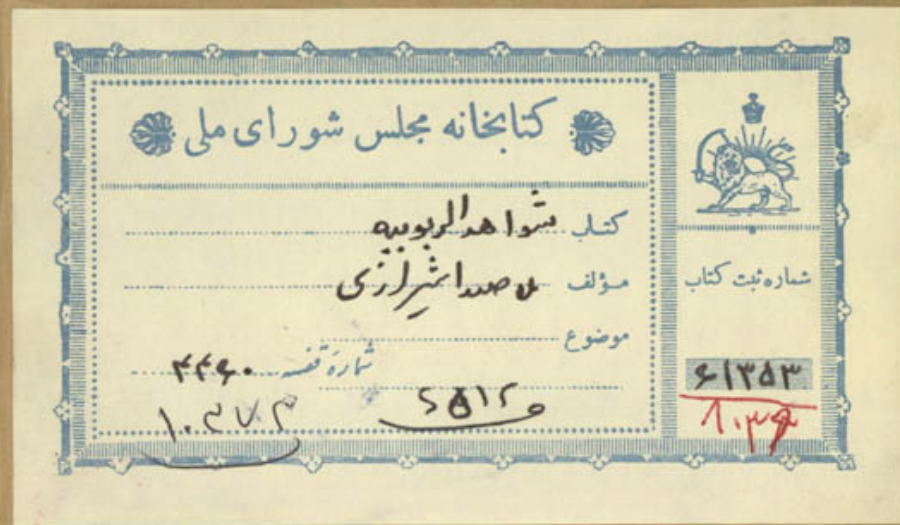 کتابخانه مجلس شورای ملی
کتاب شواهد الربوبیه
مؤلف ملا صدرا شیرازی
موضوع
شمارهٔ قفسه ۴۴۶۰
۱۰۳۷۳
شماره ثبت کتاب
۶۱۳۵۳